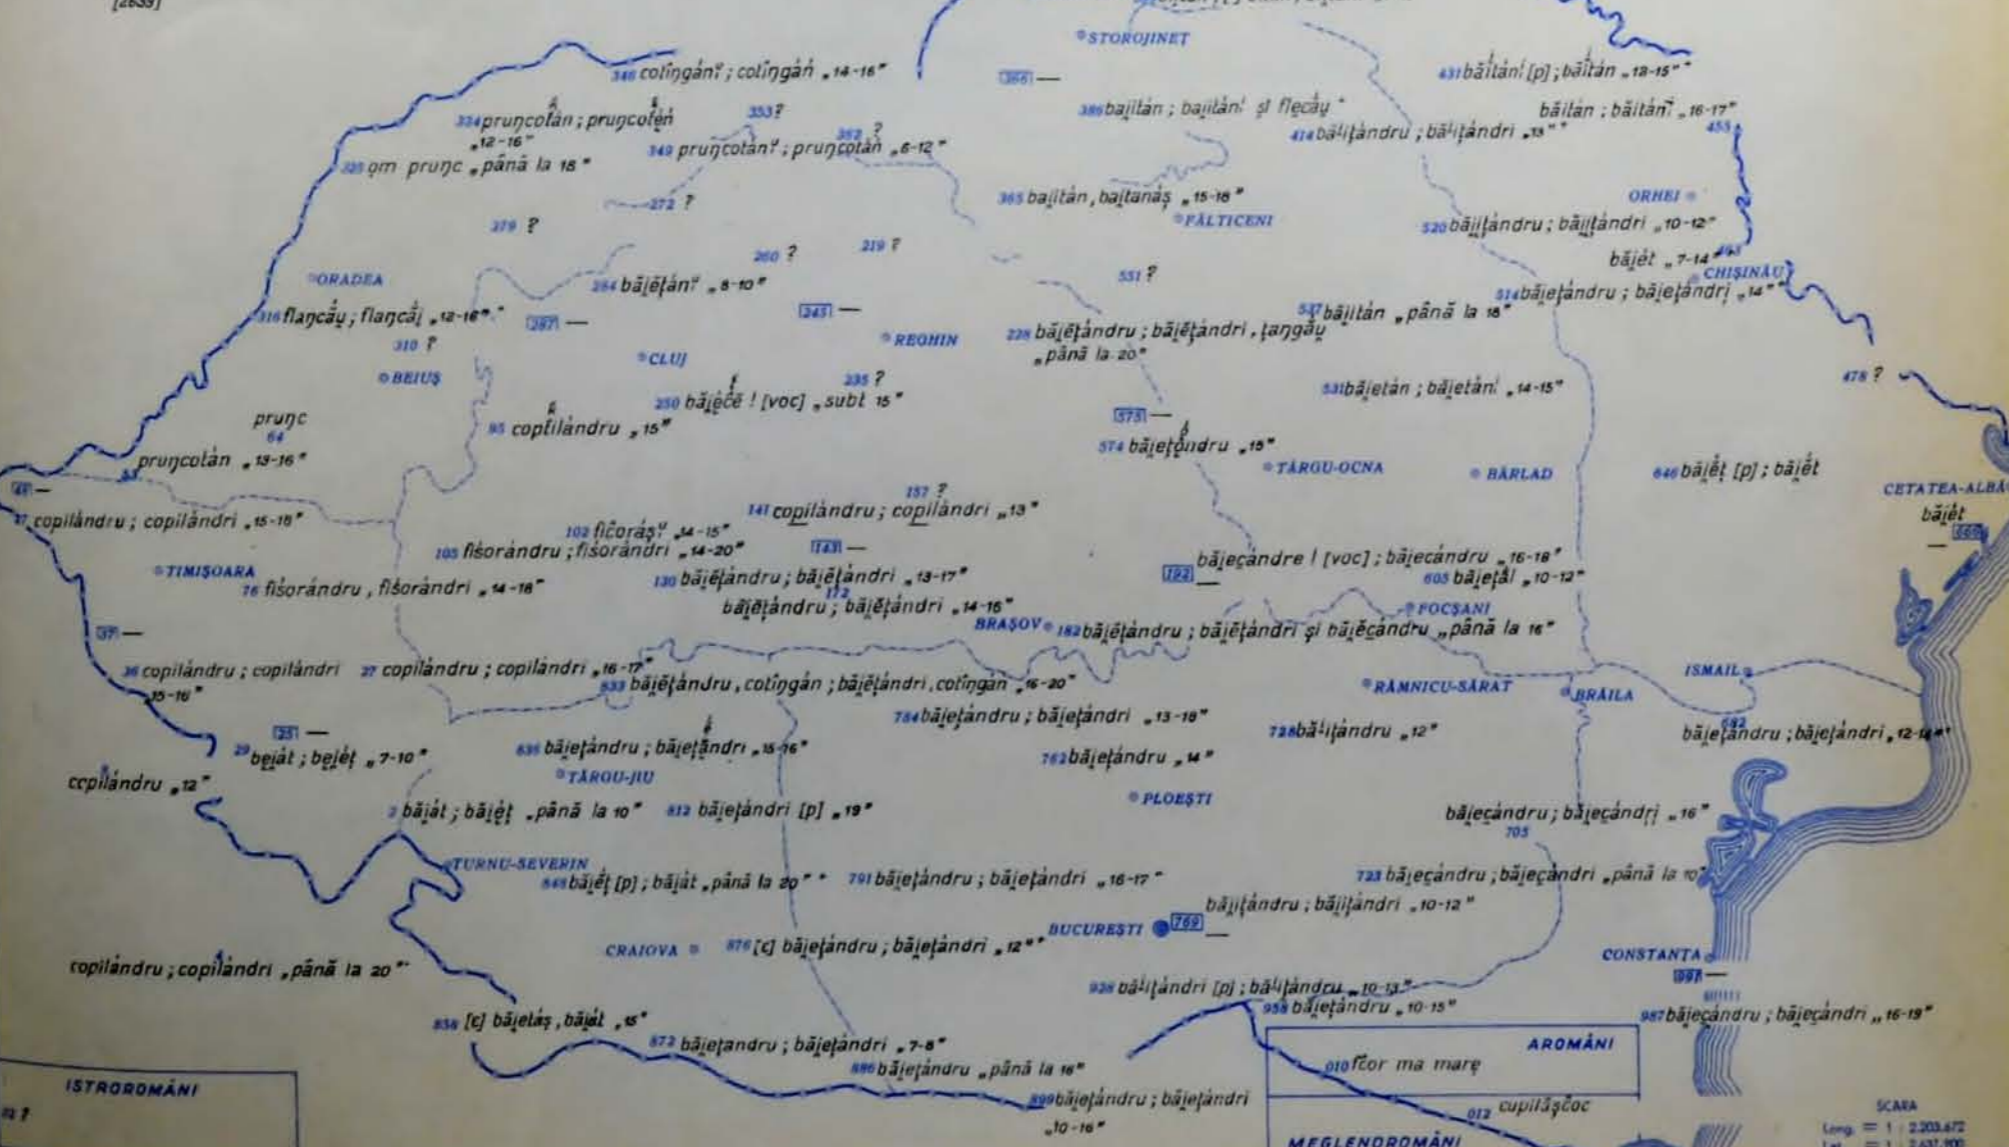 [2633]
STOROJINEȚ
346 cotîŋgánˇ ; cotîŋgáń „14-16"
366 —
431 băi̯tánⁱ [p] ; băi̯tán „12-15"
334 pruŋcotán ; pruŋcotéń
353 ?
386 bai̯i̯tán ; bai̯i̯tánⁱ și flęcắu̯
băi̯tán ; băi̯tánⁱ „16-17"
455
„12-16"
362 ?
414 băⁱițándru ; băⁱițándri „13"
349 pruŋcotánˇ ; pruŋcotáń „6-12"
325 om pruŋc „până la 18"
272 ?
365 bai̯i̯tán, bai̯tanáș „15-18"
ORHEI
FĂLTICENI
279 ?
520 băi̯ițándru ; băi̯ițándri „10-12"
219 ?
260 ?
băi̯ét „7-14"
CHIȘINĂU
ORADEA
284 băi̯ețánˇ „8-10"
551 ?
514 băi̯ețándru ; băi̯ețándri „14"
316 flaŋcắu̯ ; flaŋcắi̯ „12-16"
287 —
243 —
537 băi̯itán „până la 18"
228 băi̯ețándru ; băi̯ețándri, țaŋgắu̯
310 ?
REGHIN
„până la 20"
CLUJ
BEIUȘ
235 ?
478 ?
250 băi̯éće ! [voc] „subt 15"
531 băi̯etán ; băi̯etánⁱ „14-15"
pruŋc
64
95 coptilándru „15"
575 —
574 băi̯ețóndru „15"
pruŋcotán „13-16"
53
TÂRGU-OCNA
BÂRLAD
646 băi̯éț [p] ; băi̯ét
CETATEA-ALBĂ
47 copilándru ; copilándri „15-18"
157 ?
141 copilándru ; copilándri „13"
băi̯ét
—
102 ficoráșˇ „14-15"
105 fišorándru ; fišorándri „14-20"
143 —
TIMIȘOARA
76 fišorándru, fišorándri „14-18"
130 băi̯ețándru ; băi̯ețándri „13-17"
192 —
băi̯ecándre ! [voc] ; băi̯ecándru „16-18"
605 băi̯ețál „10-12"
172
băi̯ețándru ; băi̯ețándri „14-16"
FOCȘANI
BRAȘOV
182 băi̯ețándru ; băi̯ețándri și băi̯ecándru „până la 16"
37 —
36 copilándru ; copilándri
27 copilándru ; copilándri „16-17"
15-16"
833 băi̯ețándru, cotîŋgán ; băi̯ețándri, cotîŋgán „16-20"
RÂMNICU-SĂRAT
BRĂILA
ISMAIL
784 băi̯ețándru ; băi̯ețándri „13-18"
728 băⁱițándru „12"
682
băi̯ețándru ; băi̯ețándri „12-14"
25 —
29 bei̯át ; bei̯éț „7-10"
836 băi̯ețándru ; băi̯ețándri „15-16"
762 băi̯ețándru „14"
TÂRGU-JIU
copilándru „12"
PLOEȘTI
2 băi̯át ; băi̯éț „până la 10"
812 băi̯ețándri [p] „19"
băi̯ecándru ; băi̯ecándri „16"
705
TURNU-SEVERIN
848 băi̯éț [p] ; băi̯át „până la 20"
791 băi̯ețándru ; băi̯ețándri „16-17"
723 băi̯ecándru ; băi̯ecándri „până la 10"
băi̯ițándru ; băi̯ițándri „10-12"
BUCUREȘTI 769 —
CRAIOVA
876 [c] băi̯ețándru ; băi̯ețándri „12"
CONSTANȚA
copilándru ; copilándri „până la 20"
—
928 băⁱițándri [p] ; băⁱițándru „10-13"
958 băi̯ețándru „10-15"
858 [c] băi̯etáș, băi̯át „15"
987 băi̯ecándru ; băi̯ecándri „16-19"
872 băi̯ețandru ; băi̯ețándri „7-8"
AROMÂNI
886 băi̯ețándru „până la 16"
010 fčor ma mare
ISTROROMÂNI
899 băi̯ețándru ; băi̯ețándri
„10-16"
012 cupilášcoc
MEGLENOROMÂNI
SCARA
Long. = 1 : 2.203.672